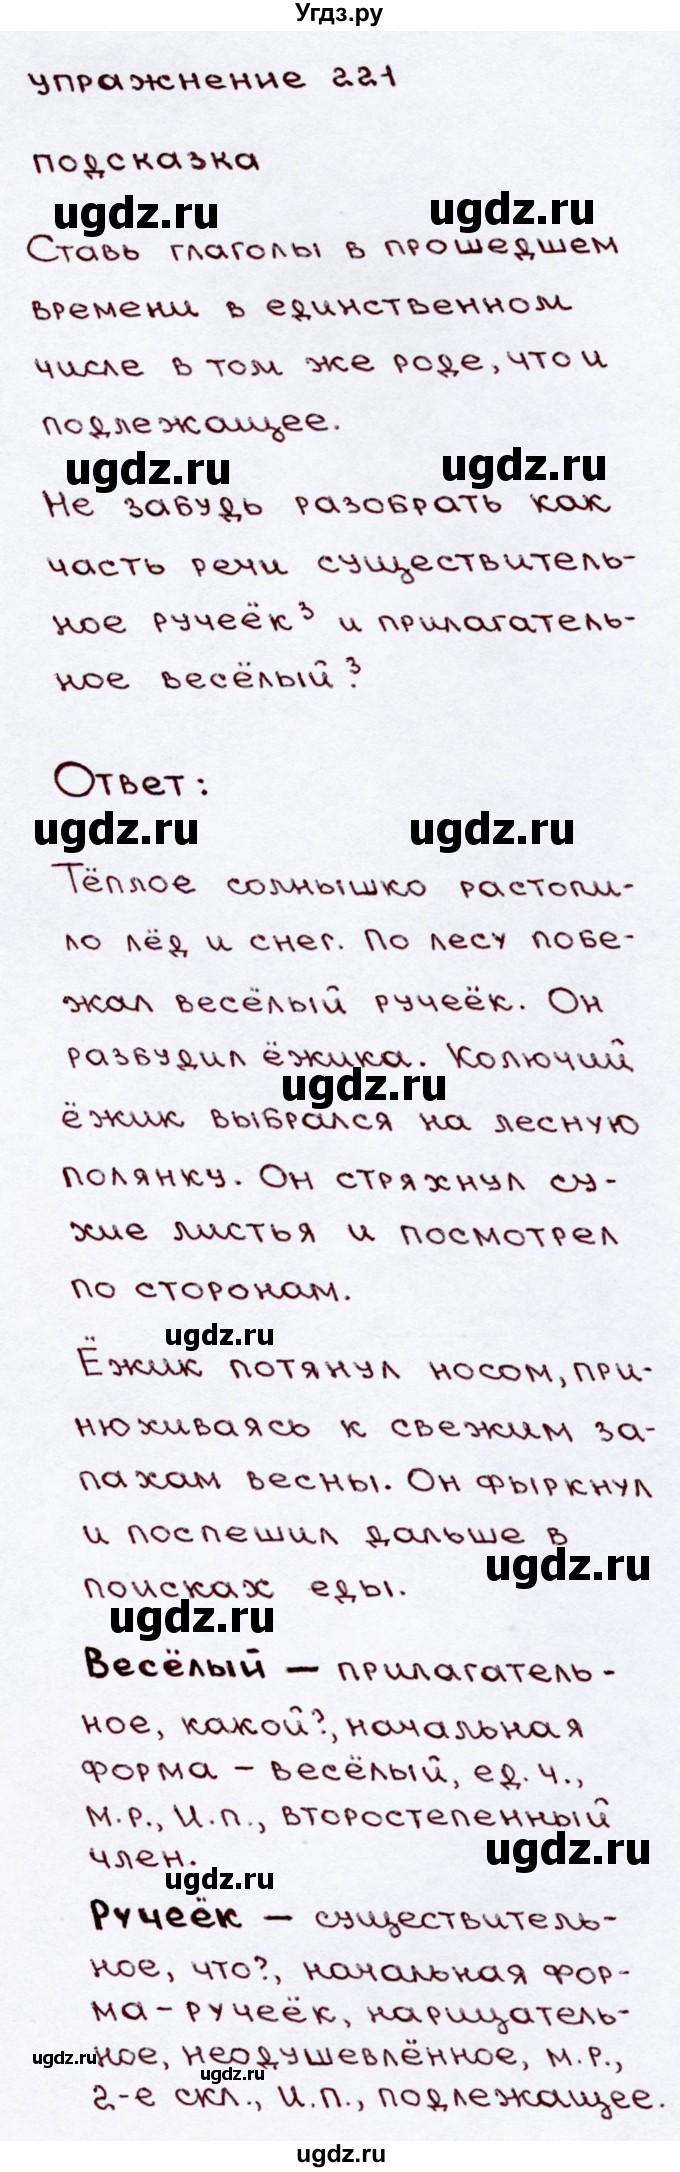 Угдз.ру
упражнение 221
подсказка
ugdz.ru ugdz.ru
Ставь глаголы в прошедшем
времени в единственном
числе в том же роде, что и
подлежащее.
ugdz.ru ugdz.ru
Не забудь разобрать как
часть речи существитель-
ное ручеёк³ и прилагатель-
ное весёлый³.
Ответ:
ugdz.ru ugdz.ru
Тёплое солнышко растопи-
ло лёд и снег. По лесу побе-
жал весёлый ручеёк. Он
разбудил ёжика. Колючий
ugdz.ru
ёжик выбрался на лесную
полянку. Он стряхнул су-
хие листья и посмотрел
по сторонам.
ugdz.ru
Ёжик потянул носом, при-
нюхиваясь к свежим за-
пахам весны. Он фыркнул
и поспешил дальше в
ugdz.ru
поисках еды.
ugdz.ru
Весёлый – прилагатель-
ное, какой?, начальная
форма – весёлый, ед. ч.,
м.р., И.п., второстепенный
член.
ugdz.ru
ugdz.ru
Ручеёк – существитель-
ное, что?, начальная фор-
ма – ручеёк, нарицатель-
ugdz.ru ное, неодушевлённое, м.р.,
ugdz.ru
2-е скл., И.п., подлежащее.
ugdz.ru